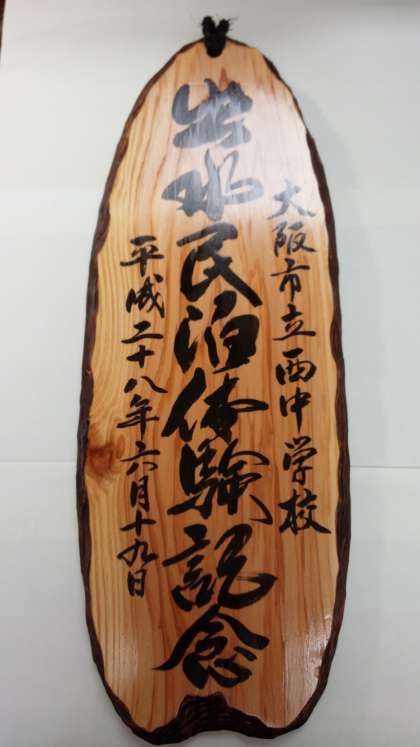 大阪市立西中学校
出水民泊体験記念
平成二十八年六月十九日